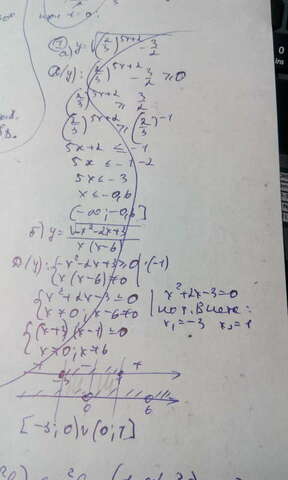 ① а) y = √((2/3)^(5x+2) - 3/2)
D(y): (2/3)^(5x+2) - 3/2 ≥ 0
(2/3)^(5x+2) ≥ 3/2
(2/3)^(5x+2) ≥ (2/3)^(-1)
5x+2 ≤ -1
5x ≤ -1-2
5x ≤ -3
x ≤ -0,6
(-∞; -0,6]
б) y = √(-x²-2x+3) / x(x-6)
D(y): { -x²-2x+3 ≥ 0 | ·(-1)
x(x-6) ≠ 0
{ x²+2x-3 ≤ 0
x ≠ 0; x ≠ 6
x²+2x-3=0
по т. Виета:
x₁=-3 x₂=1
{ (x+3)(x-1) ≤ 0
x ≠ 0; x ≠ 6
+ - +
-3 1
0 6
[-3; 0) ∪ (0; 1]